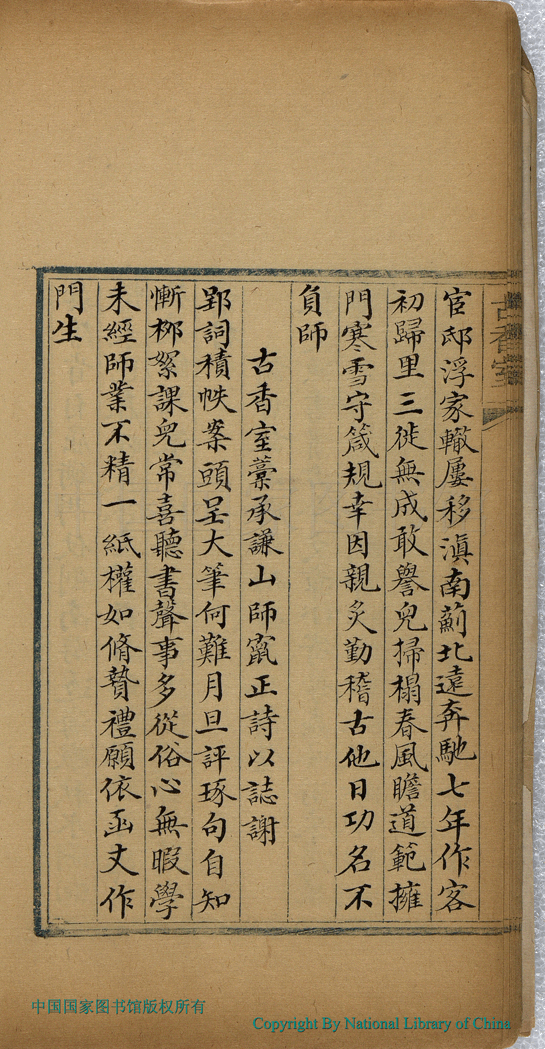 古香室
宦邸浮家轍屢移滇南薊北遠奔馳七年作客
初歸里三徙無成敢譽兒掃榻春風瞻道範擁
門寒雪守箴規幸因親炙勤稽古他日功名不
負師
古香室藁承謙山師竄正詩以誌謝
郢詞積帙案頭呈大筆何難月旦評琢句自知
慚栁絮課兒常喜聽書聲事多從俗心無暇學
未經師業不精一紙權如脩贄禮願依函丈作
門生
中国国家图书馆版权所有
Copyright By National Library of China